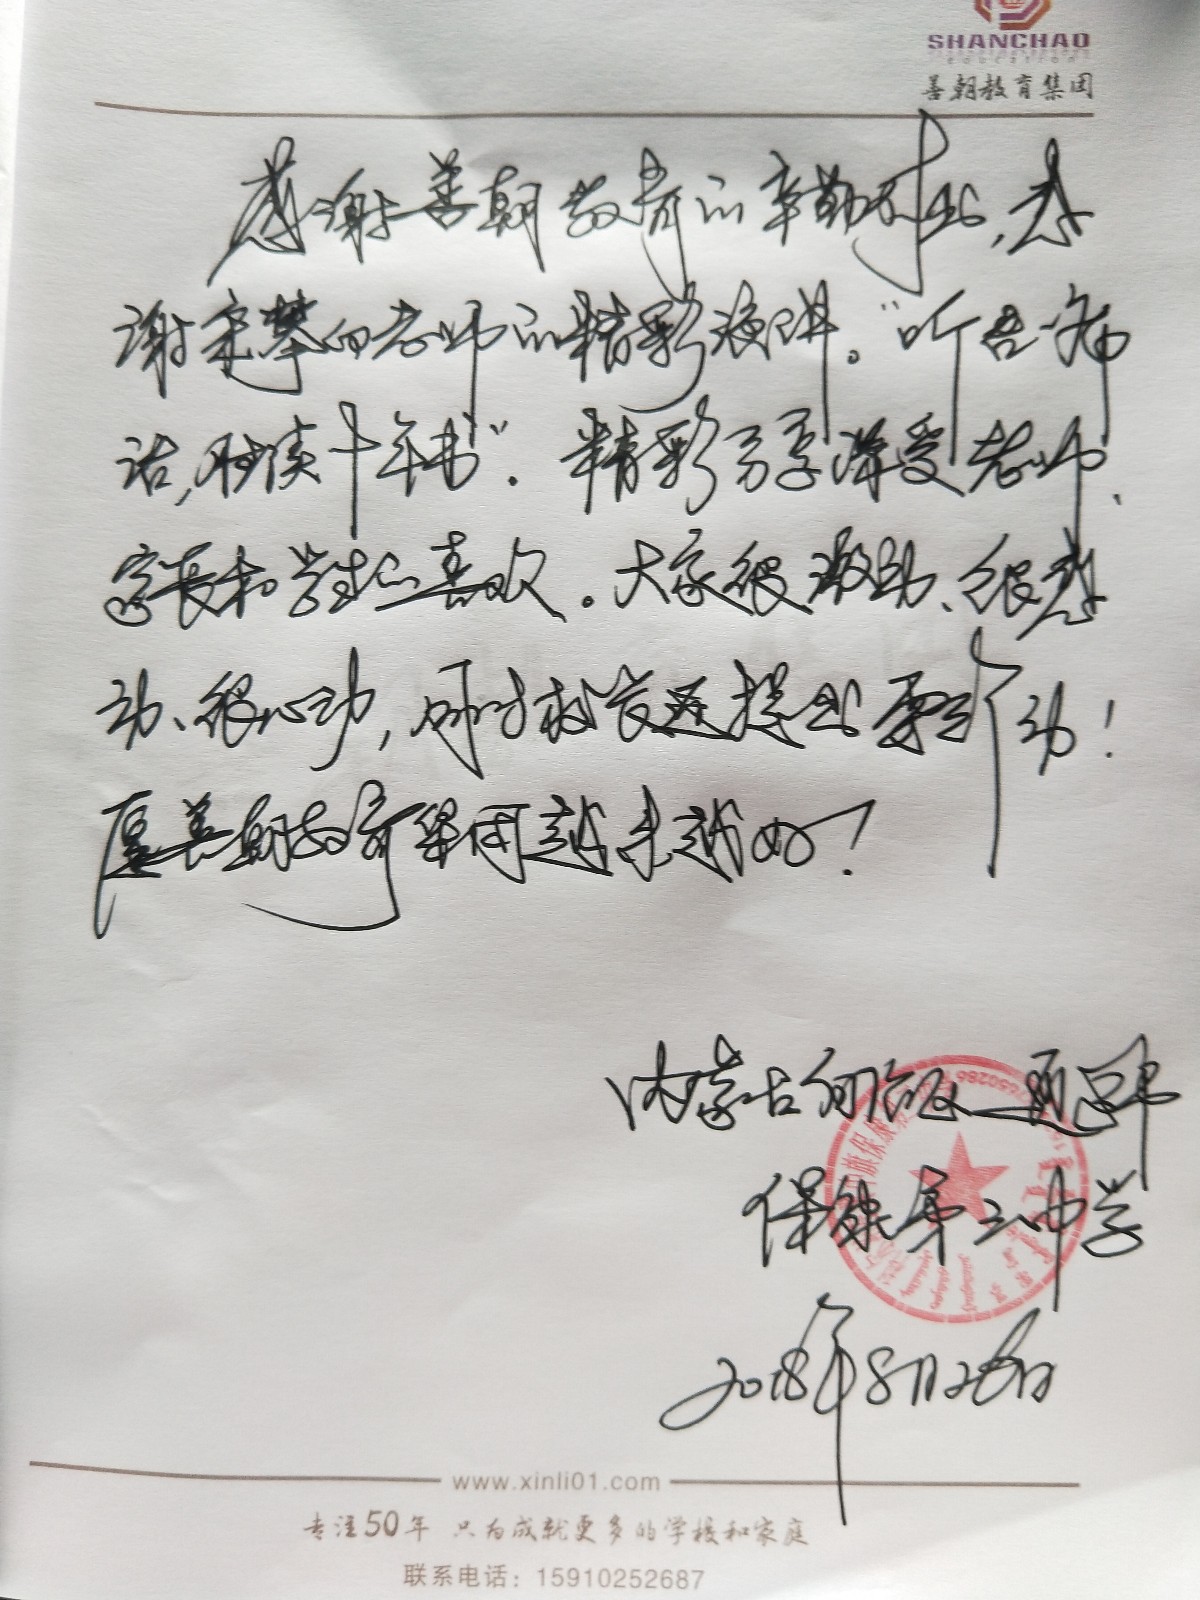 SHANCHAO
education
善朝教育集团
感谢善朝教育的辛勤付出,感
谢宋攀的老师的精彩演讲。“听君一席
话,胜读十年书”.精彩分享深受老师、
家长和学生的喜欢.大家很激动、很感
动、很心动,同时校长还提出要行动!
愿善朝教育集团越来越好!
内蒙古 通辽市
保康第三中学
2018年8月28日
www.xinli01.com
专注50年 只为成就更多的学校和家庭
联系电话:15910252687